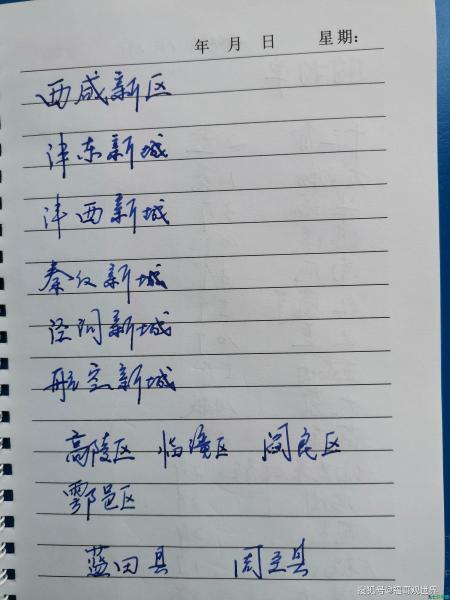 年 月 日 星期:
西咸新区
沣东新城
沣西新城
秦汉新城
泾河新城
航空新城
高陵区 临潼区 阎良区
鄠邑区
蓝田县 周至县
搜狐号@猫哥观世界